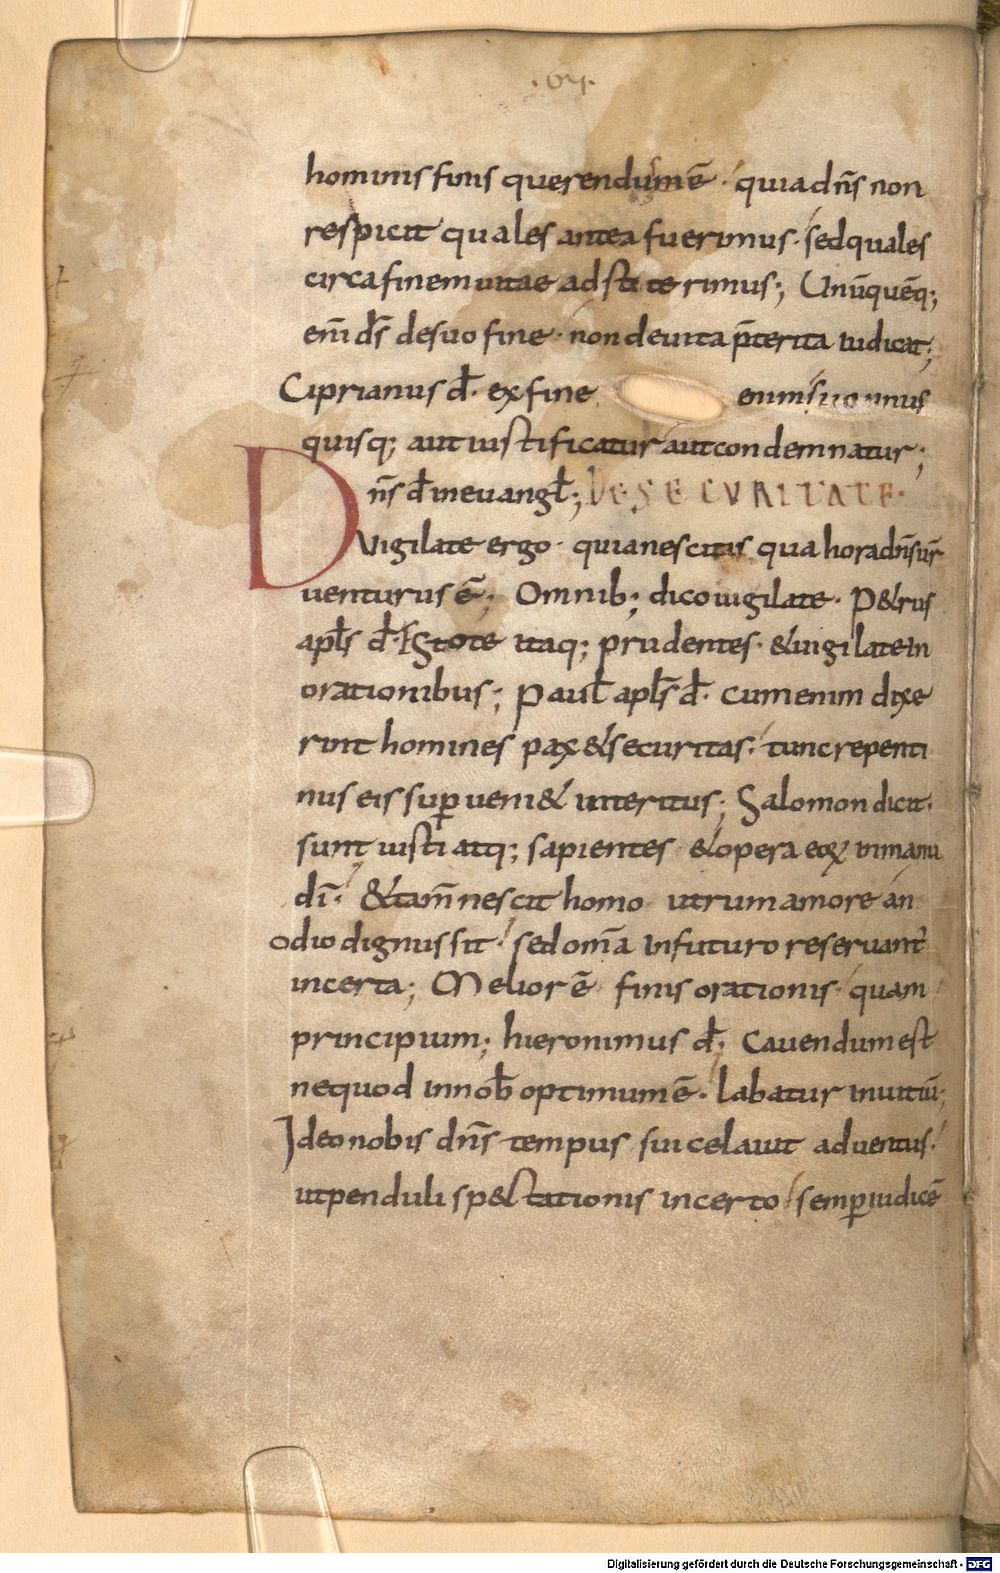 ·64·
hominis finis querendum ē· quia dn̄s non
respicit quales antea fuerimus· sed quales
circa finem uitae adstiterimus; Unūquēq;
eni d̄s de suo fine· non de uita p̄terita iudicat;
Ciprianus d̄· ex fine enim suo unus
quisq; aut iustificatur aut condemnatur;
Dn̄s d̄ in euangl̄; DE SECURITATE·
Vigilate ergo· quia nescitis qua hora dn̄s ur̄
uenturus ē; Omnib; dico uigilate· P&rus
apl̄s d̄· Estote itaq; prudentes· & uigilate in
orationibus; Paul̄ apl̄s d̄· cum enim dixe
rint homines pax & securitas· tunc repenti
nus eis suꝑueni& interitus; Salomon dicit·
sunt iusti atq; sapientes & opera eoꝝ in manu
dī· & tam̄ nescit homo utrum amore an
odio dignus sit· sed om̄a in futuro reseruant᷑
incerta; Melior ē finis orationis· quam
principium; hieronimus d̄; Cauendum est
ne quod in nob̄ optimum ē· labatur in uitiū;
Ideo nobis dn̄s tempus sui celauit aduentus·
ut penduli sp&ctationis incerto semꝑ iudicē
Digitalisierung gefördert durch die Deutsche Forschungsgemeinschaft - DFG